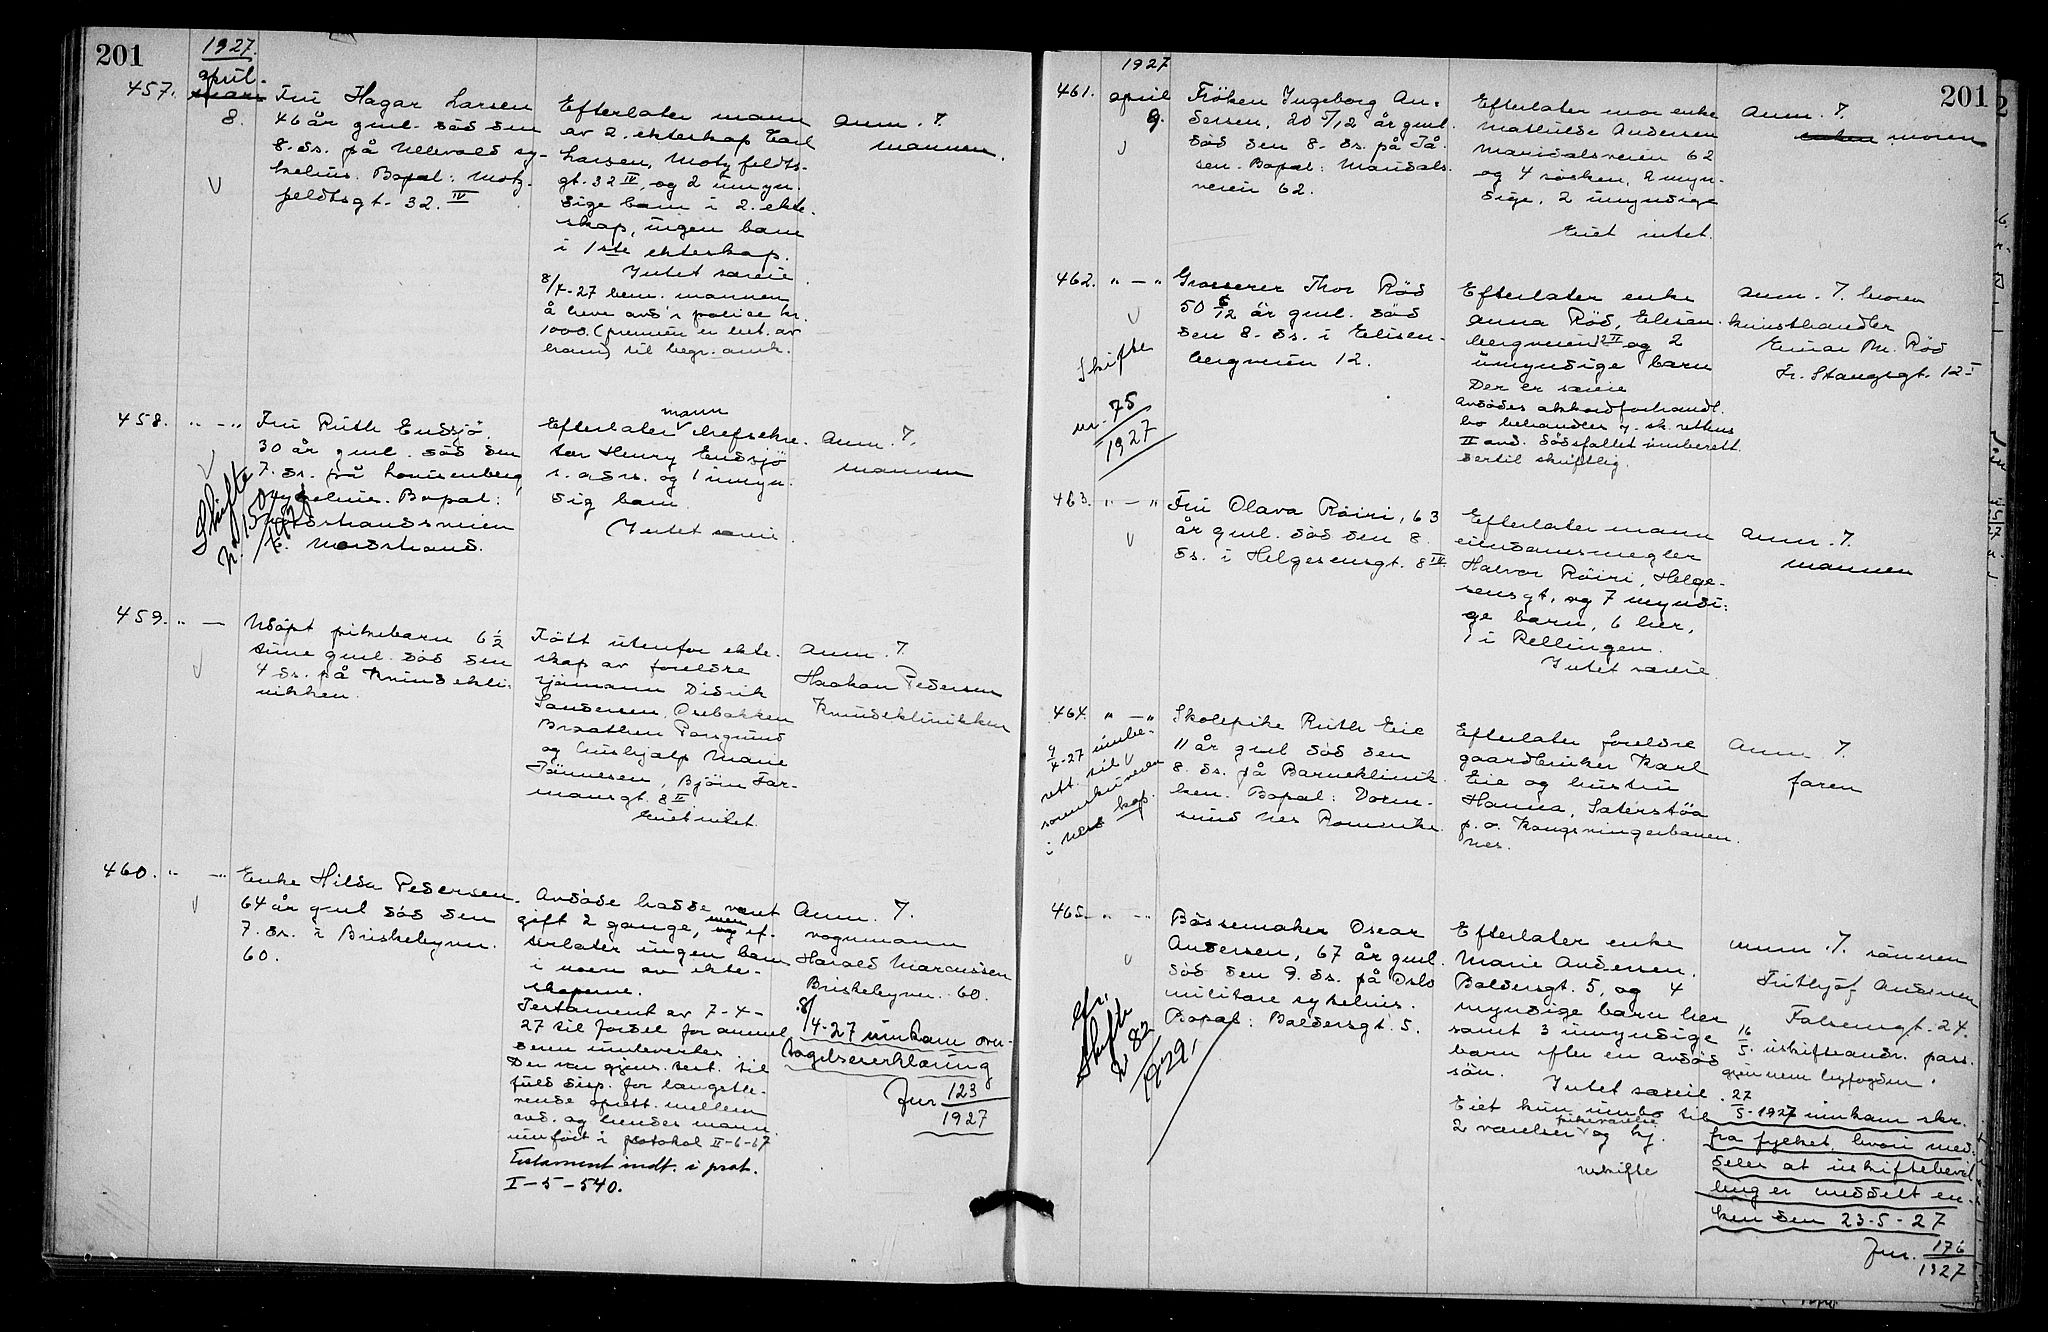 201
1927.
april.
457.
8.
Fru Hagar Larsen
46 år gml. død den
8. ds. på Ullevold sy-
kehus. Bopæl: Motz-
feldtsgt. 32. IV
Efterlater mann
av 2. ekteskap Carl
Larsen, Motzfeldts-
gt. 32 IV, og 2 umyn-
dige barn i 2. ekte-
skap, ingen barn
i 1ste ekteskap.
Intet særeie.
8/4-27 bem. mannen
å heve avd's police kr.
1000. (premien er bet. av
ham) til begr. omk.
Anm. 7.
mannen.
458. " — "
Fru Ruth Endsjö.
30 år gml. död den
7. ds. på Louisenberg
sykehus. Bopæl:
Nordstrandsveien
6. Nordstrand.
Skifte
nr 150
1927
mann
Efterlater chefsekre-
tær Henry Endsjö
s. adrs. og 1 umyn-
dig barn.
Intet særeie.
Anm. 7.
mannen
459. " —
Udöpt pikebarn 6 1/2
time gml. död den
4 ds. på Kvindekli-
nikken.
Född utenfor ekte-
skap av foreldre
sjömann Didrik
Sandersen, Osebakken
Braathen Porsgrund
og hushjælp Marie
Tönnesen, Björn Far-
mansgt. 8 II
Eiet intet.
Anm. 7.
Haakon Pedersen
Kvindeklinikken
460. " — "
Enke Hilda Pedersen.
64 år gml död den
7. ds. i Briskebyvn.
60.
Avdöde hadde vært
gift 2 gange, men ef-
terlater ingen barn
i noen av ekte-
skapene.
Testament av 7-4-
27 til fordel for anmel
deren innlevertes.
Der var gjens. test. til
full disp. for længstle-
vende oprett. mellem
avd. og hendes mann
innfört i protokol II-6-67
Testament indt. i prot.
I-5-540.
Anm. 7.
vognmann
Harald Marcussen
Briskebyvn. 60.
8/4-27 innkom over-
tagelseserklæring
Jnr 123
1927
201
1927
461. april
9.
Fröken Ingeborg An-
dersen, 20 5/12 år gml.
död den 8. ds. på Tå-
sen. Bopæl: Maridals-
veien 62.
Efterlater mor enke
Mathilde Andersen
Maridalsveien 62
og 4 sösken, 2 myn-
dige, 2 umyndige
Eiet intet.
Anm. 7.
moren
462. " — "
Grosserer Thor Röd
50 6/12 år gml. död
den 8. ds. i Eilisen-
bergveien 12.
Skifte
nr. 75
1927
Efterlater enke
Anna Röd, Eilisen-
bergveien 12 II og 2
umyndige barn
Der er særeie
Avdödes akkordforhandl.
bo behandler v. sk. rettens
II avd. Dödsfallet innberett.
dertil skriftlig.
Anm. 7. broren
kunsthandler
Einar M. Röd
Fr. Stangsgt. 12 I
463. " — "
Fru Olava Röiri, 63
år gml. död den 8.
ds. i Helgesensgt. 8 IV.
Efterlater mann
eiendomsmegler
Halvor Röiri, Helge-
sensgt, og 7 myndi-
ge barn, 6 her,
1 i Rellingen.
Intet særeie.
Anm. 7.
mannen
464. " — "
9/4-27 innbe-
rett. til
sorenskriveren
i Nes
Skolepike Ruth Eie
11 år gml död den
8. ds. på Barneklinik-
ken. Bopæl: Dorm-
sund Nes Romerike.
Efterlater foreldre
gaardbruker Karl
Eie og hustru
Hanna, Sæterstöa
p. o. Kongsvingerbanen
Nes.
Anm. 7.
faren
465. " — "
Bössemaker Oscar
Andersen, 67 år gml.
död den 9. ds. på Oslo
militære sykehus.
Bopæl: Baldersgt. 5.
cfr.
Skifte
nr 82
1929.
Efterlater enke
Marie Andersen,
Baldersgt. 5, og 4
myndige barn her
samt 3 umyndige
barn efter en avdöd
sön.
Intet særeie.
Eiet kun innbo til
2 værelser pikeværelse og kj.
uskifte
Anm. 7. sönnen
Frithjof Andersen
Falsensgt. 24.
16/5. uskifteandr. pass.
gjennem byfogden.
27/5-1927 innkom skr.
fra fylket, hvori med-
deles at uskiftebevil-
ling er meddelt en-
ken den 23-5-27
Jnr. 176
1927